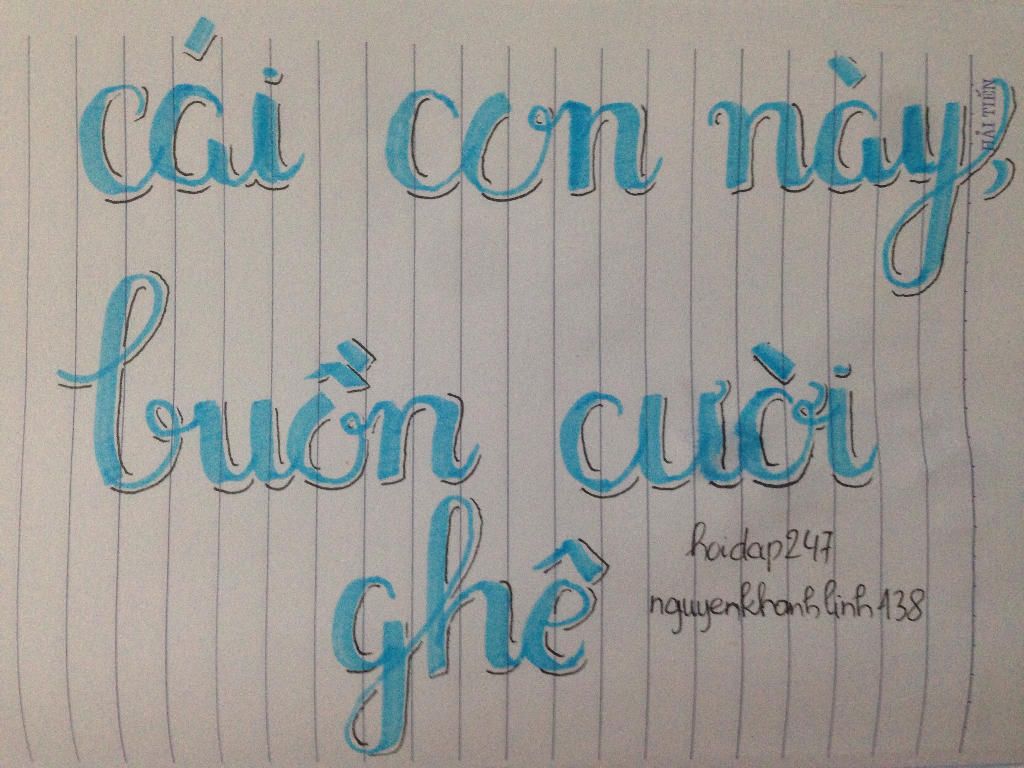 cái con này,
HẢI TIẾN
buồn cười
ghê
hoidap247
nguyenkhanhlinh138